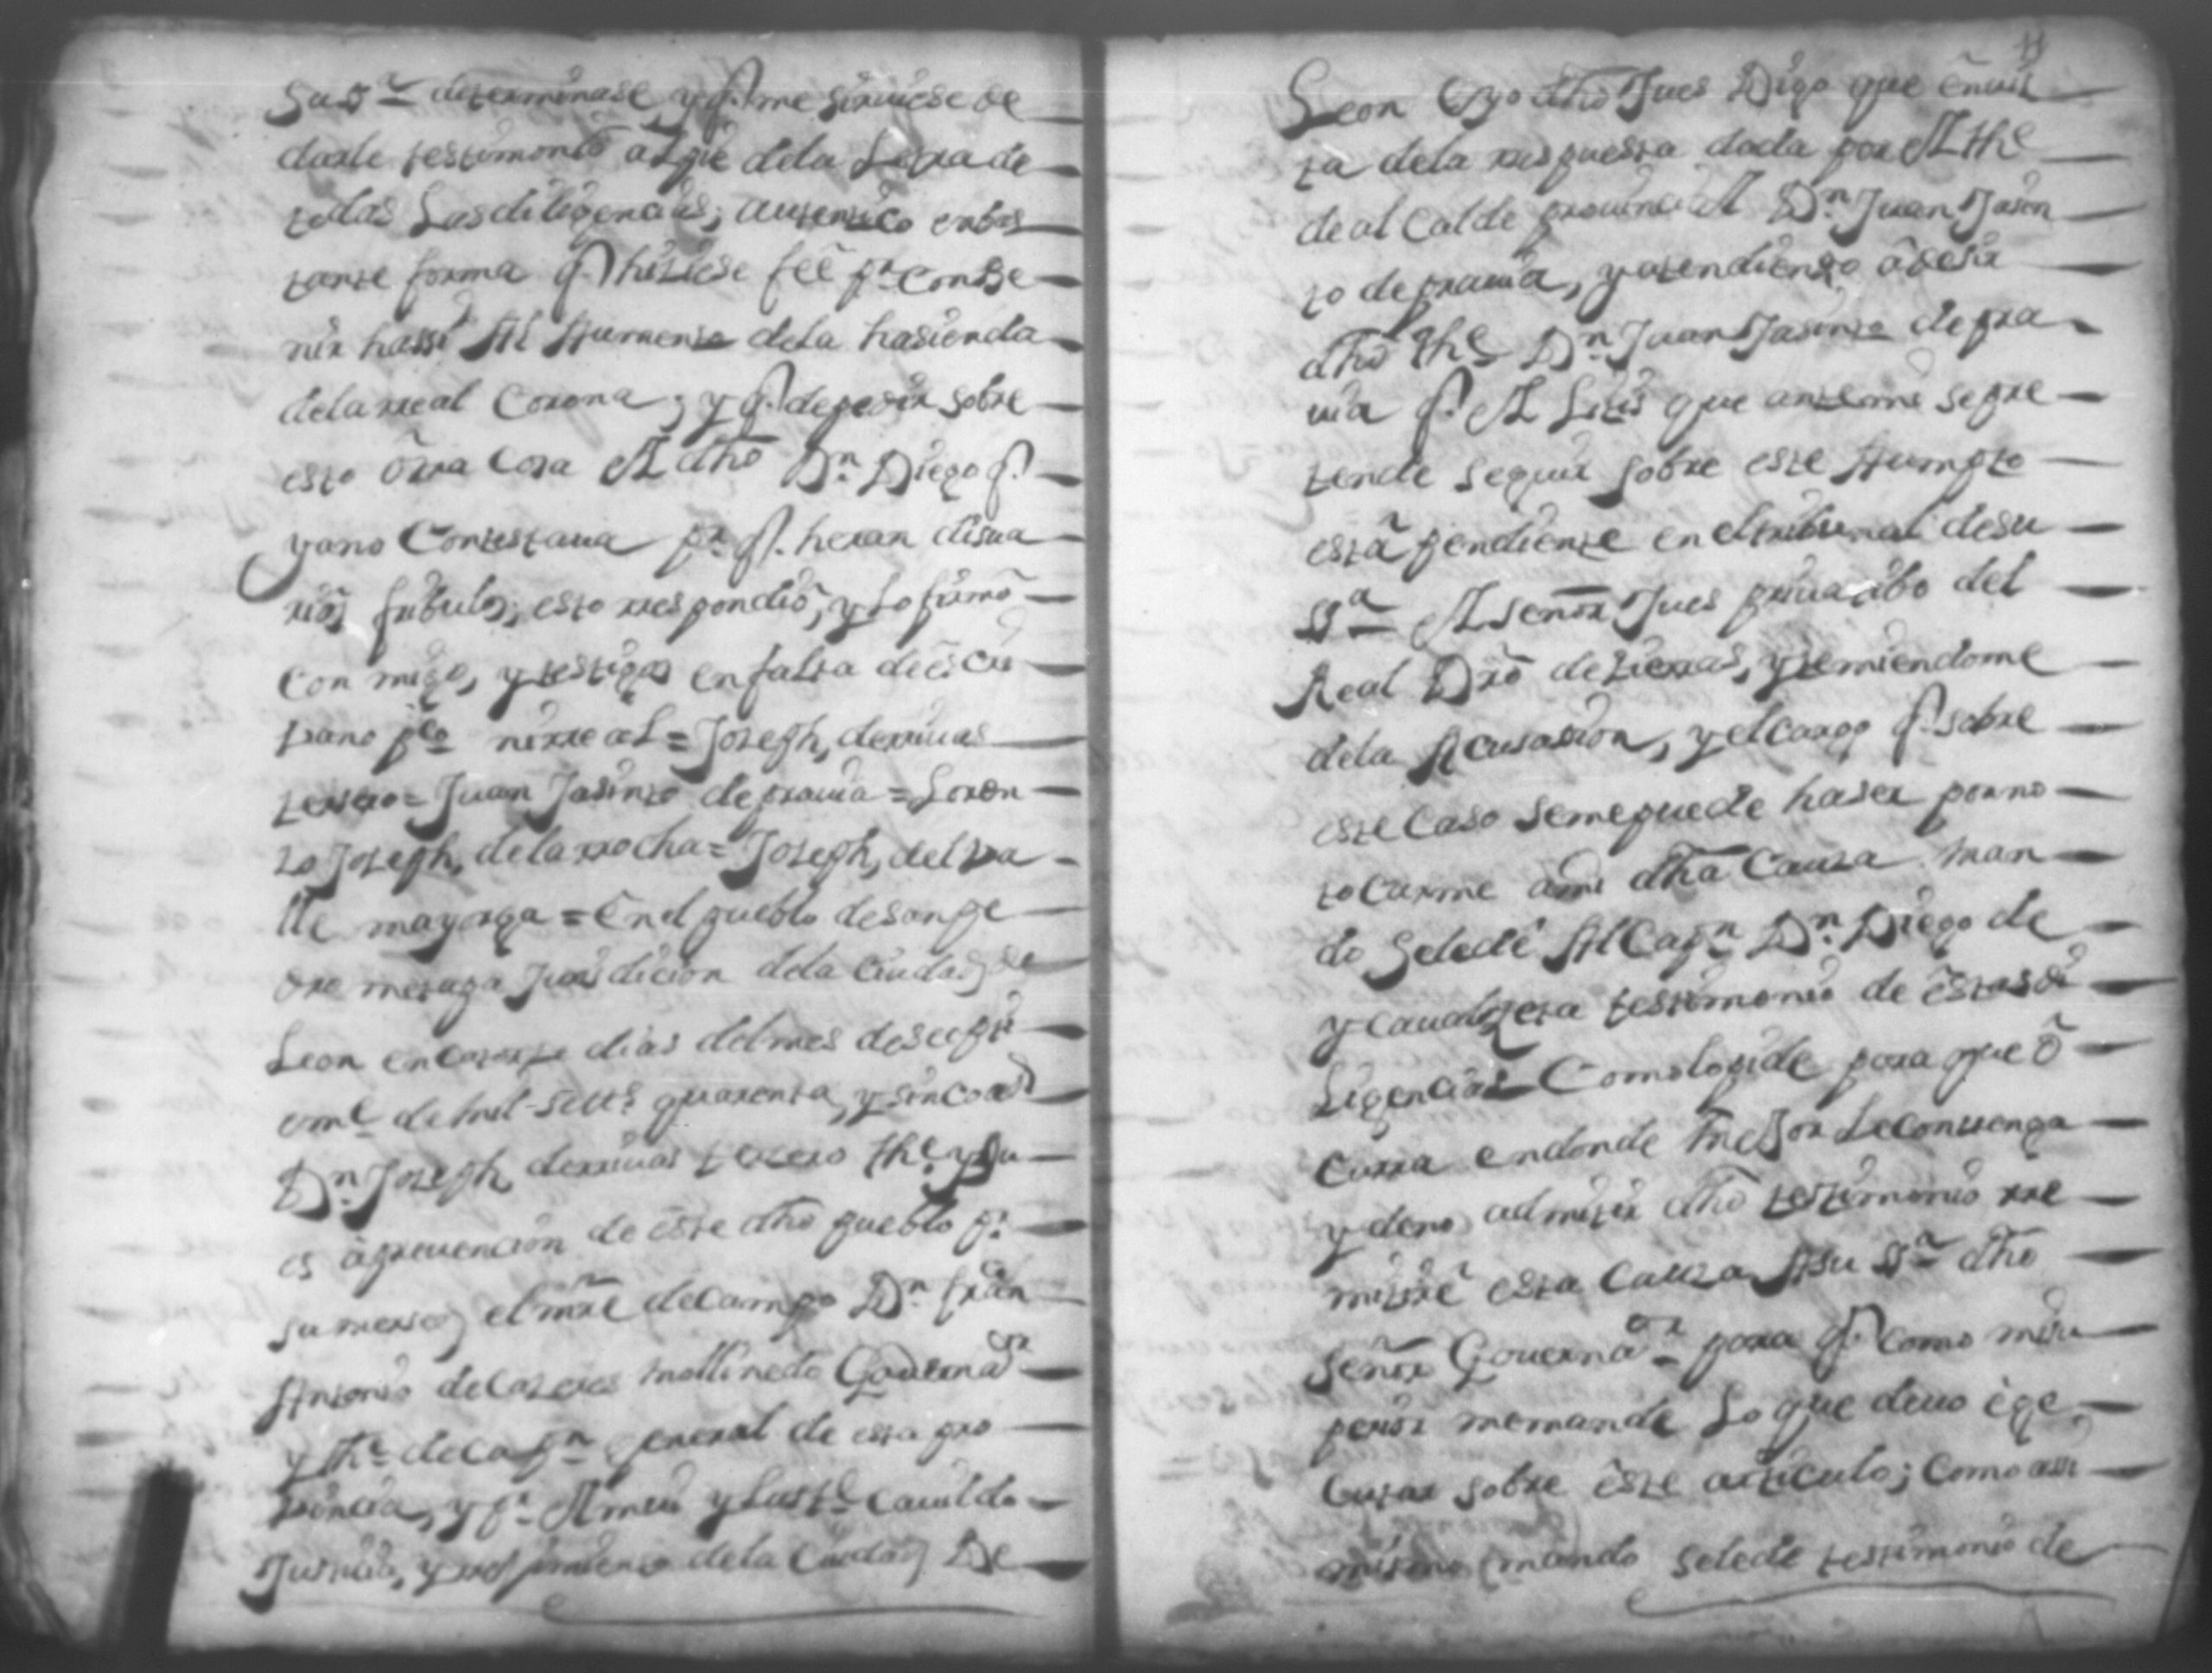 Su Sª determinase y q.e me sirviese de
darle testimonio al pie dela Letra de
todas Las diligencias, autentico enbas
tante forma q.e hisiese feê pª Conbe
nir hassi Al Aumento dela hasienda
dela rreal Corona; y q.e depedir sobre
esto ôtra Cosa Al dhô Dn. Diego q.e
yano Contestava pr. q.e heran disua
rios fribulos; esto rrespondiô, y Lo firmô
Con migo, y testigos enfalta de êscri
vano pco nirreal = Joseph, derrivas
tersero = Juan Jasinto depravia = Loren
zo Joseph, delarrocha = Joseph, del va
lle mayorga = En el pueblo desonpe
dro metapa Jurisdicion dela Ciudad de
Leon encatorze dias delmes desepti
em.e de mil setts. quarenta, y sinco as
Dn. Joseph, derrivas tersero the. y Ju
es âprevencion de êste dhô pueblo pr.
sumersed el mrê decampo Dn fran
Antonio de Cazeres mollinedo Governador
y the. deCapn general de esta pro
vincia, y pr. Al mui y Lustre. Cavildo
Justicia, y rrejimiento dela Ciudad De
11
Leon Cyo dhô Jues Digo que ênvis
ta dela rrespuesta dada por Al the
de alCalde provincial Dn Juan Jasin
to depravia, y atendiendo âdesir
dhô the Dn Juan Jasinto de pra
via q.e Al Litis que antemi sepre
tende seguir sobre este Aumpto
estâ pendiente en eltribunal desu
Sª Al señor Jues privatibo del
Real Drô detierras, y temiendome
dela Acusasion, y elcargo q.e sobre
este Caso semepuede haser porno
tocarme âmi dhâ Cauza man
do Seledê Al Capn Dn Diego de
y Cavalzeta testimonio de êstas di
Ligencias Comolopide para que ô
Curra endonde mejor Leconvenga
y deno admitir dhô testimonio rre
mitirê esta Cauza Asu Sª dhô
señor Governaor para q.e Como misu
perior memande Lo que devo êge
Cutar sobre êste artículo; Como assi
mismo mando selede testimonio de